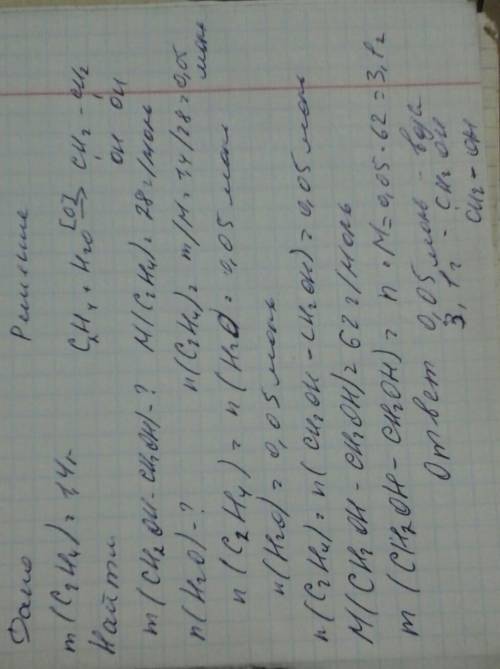 Дано
Решение
m(C2H4)=1,4г
C2H4 + H2O [O] → CH2 - CH2
OH OH
Найти
m(CH2OH-CH2OH)-? M(C2H4)=28г/моль
n(H2O)-? n(C2H4)=m/M=1,4/28=0,05 моль
n(C2H4)=n(H2O)=0,05 моль
n(H2O)=0,05 моль
n(C2H4)=n(CH2OH-CH2OH)=0,05 моль
M(CH2OH-CH2OH)=62г/моль
m(CH2OH-CH2OH)=n·M=0,05·62=3,1г
Ответ 0,05 моль - вода
3,1г - CH2OH
CH2-OH